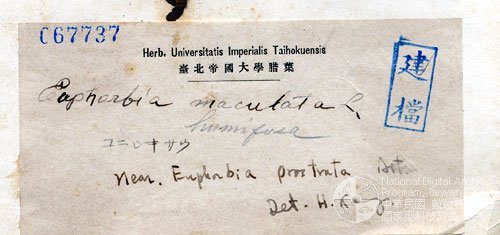 067737
Herb. Universitatis Imperialis Taihokuensis
臺北帝國大學腊葉
建檔
Euphorbia maculata L.
humifusa
Near. Euphorbia prostrata Ait.
Det. H.
National Digital Archives
Program, Taiwan